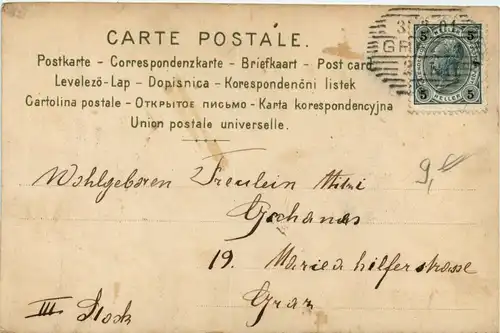 CARTE POSTALE.
Postkarte - Correspondenzkarte - Briefkaart - Post card
Levelező-Lap - Dopisnica - Korespondenčni listek
Cartolina postale - Открытое письмо - Karta korespondencyjna
Union postale universelle.
5 5
HELLER
5 5
9,
Wohlgeboren Freulein Mitzi
19. Mariahilferstrasse
III Stock
Graz